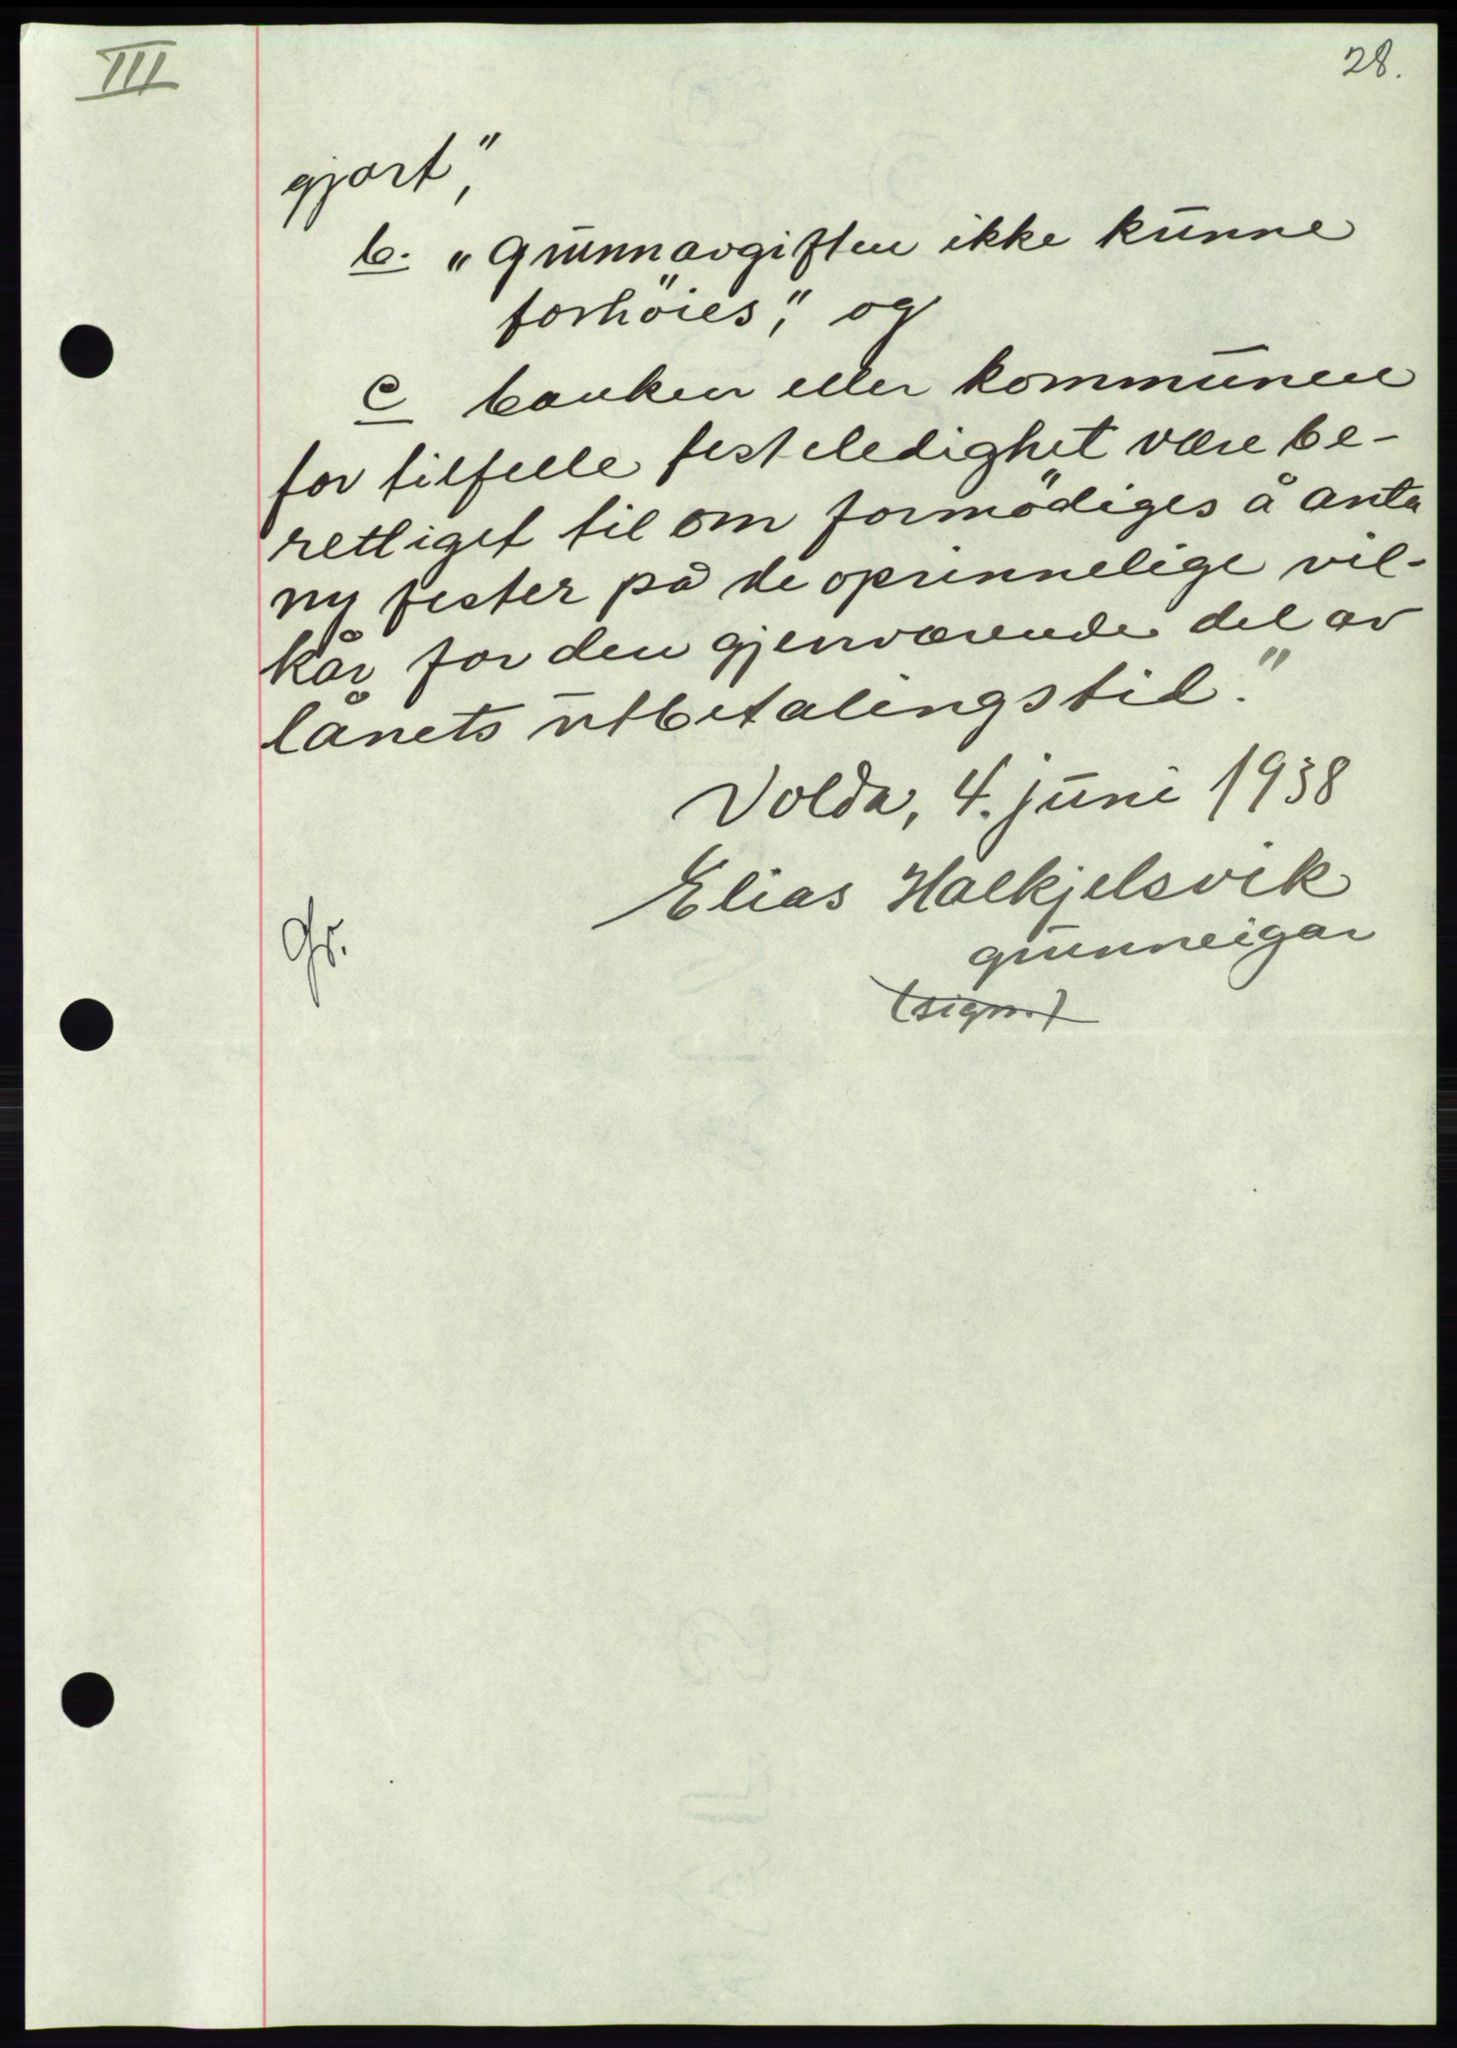 III
28.
gjort",
b. „Grunnavgiften ikke kunne
forhöies", og
c banken eller kommunen
for tilfelle festeledighet være be-
rettiget til om formödiges å anta
ny fester på de oprinnelige vil-
kår for den gjenværende del av
lånets utbetalingstid."
Volda, 4. juni 1938
Elias Halkjelsvik
grunneigar
(sign.)